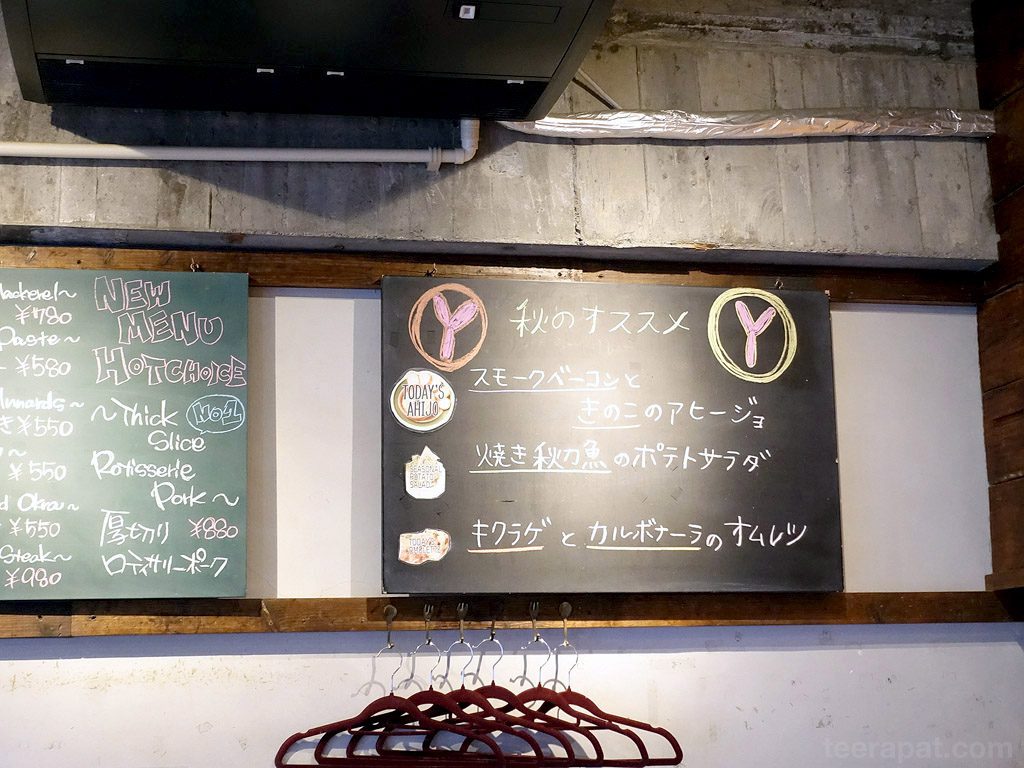 ¥780
Paste~
¥580
Innards~
き¥550
¥550
Okra~
¥550
Steak~
¥980
NEW
MENU
HOTCHOICE
~Thick
No.1
Slice
Rotisserie
Pork~
厚切り ¥880
ロティサリーポーク
Y 秋のオススメ Y
TODAY'S
AHIJO
スモークベーコンと
きのこのアヒージョ
SEASONAL
POTATO
SALAD
焼き秋刀魚のポテトサラダ
TODAY'S
キクラゲとカルボナーラのオムレツ
teerapat.com